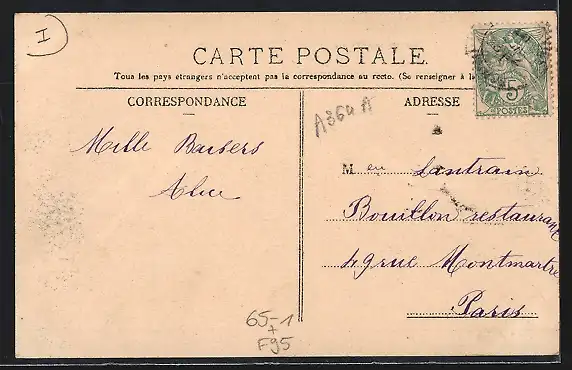 I
CARTE POSTALE.
Tous les pays étrangers n'acceptent pas la correspondance au recto. (Se renseigner à la
CORRESPONDANCE
ADRESSE
A364 A
5
POSTES
Mille Baisers
Alice
M en Lantrain
Bouillon restaurant
49 rue Montmartre
Paris
65-1
+
F95